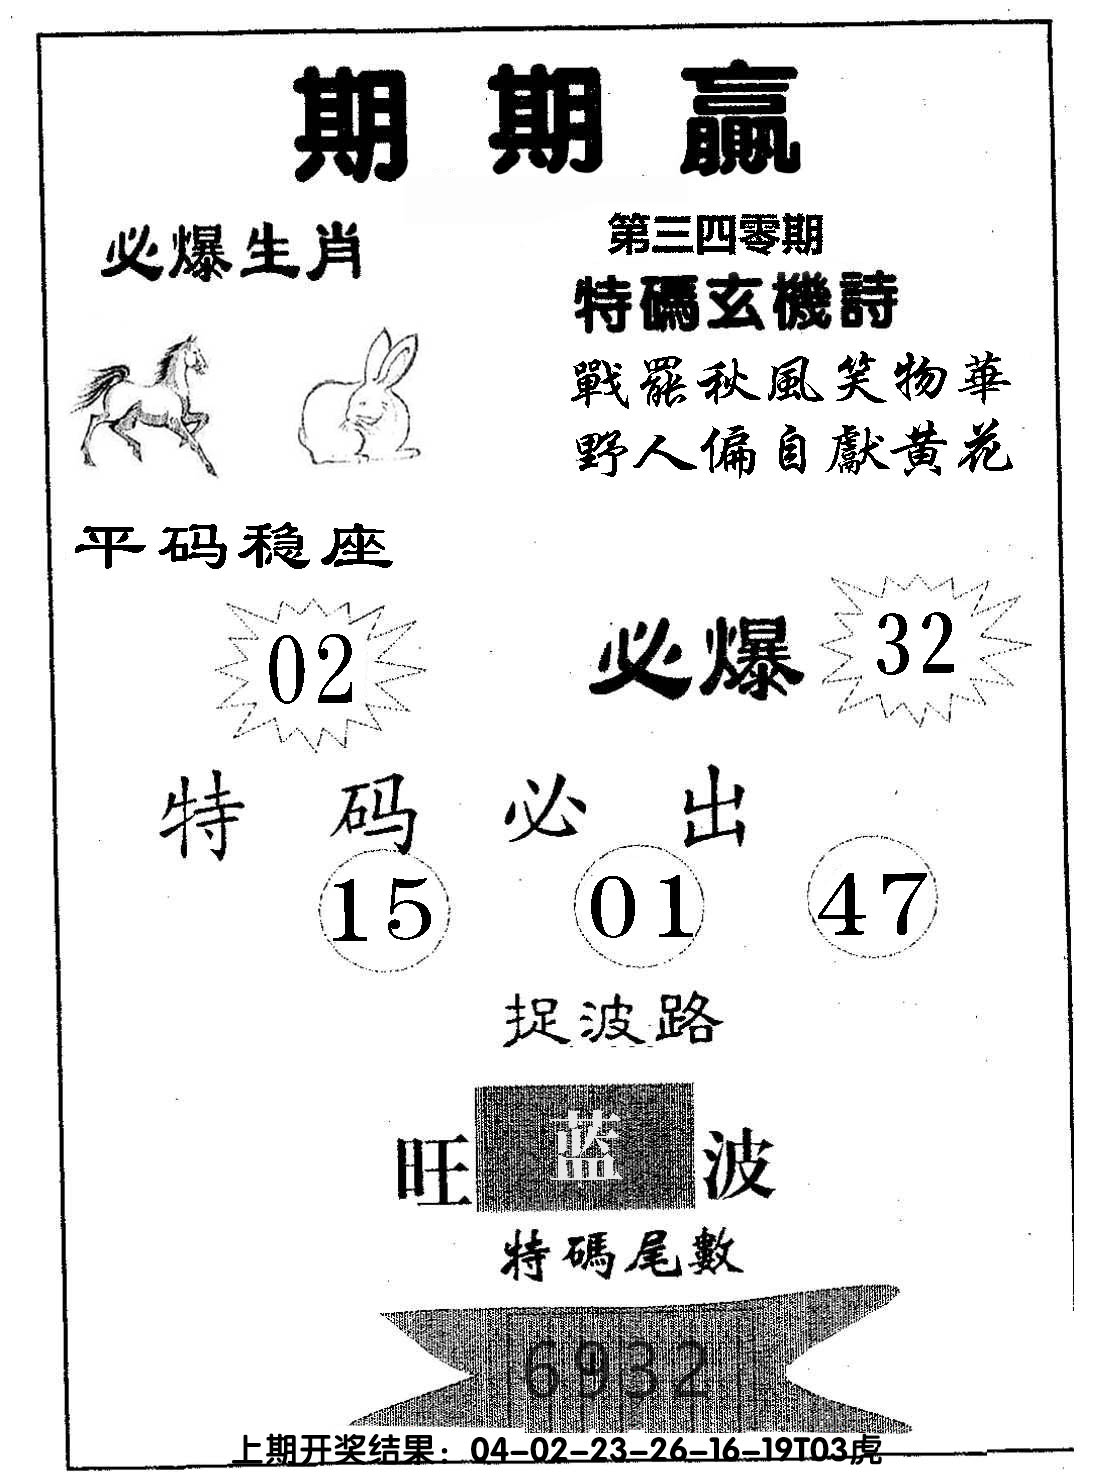 期期赢
必爆生肖
第三四零期
特碼玄機詩
戰罷秋風笑物華
野人偏自獻黄花
平码稳座
02
必爆 32
特码必出
15 01 47
捉波路
旺蓝波
特碼尾數
6932
上期开奖结果：04-02-23-26-16-19T03虎